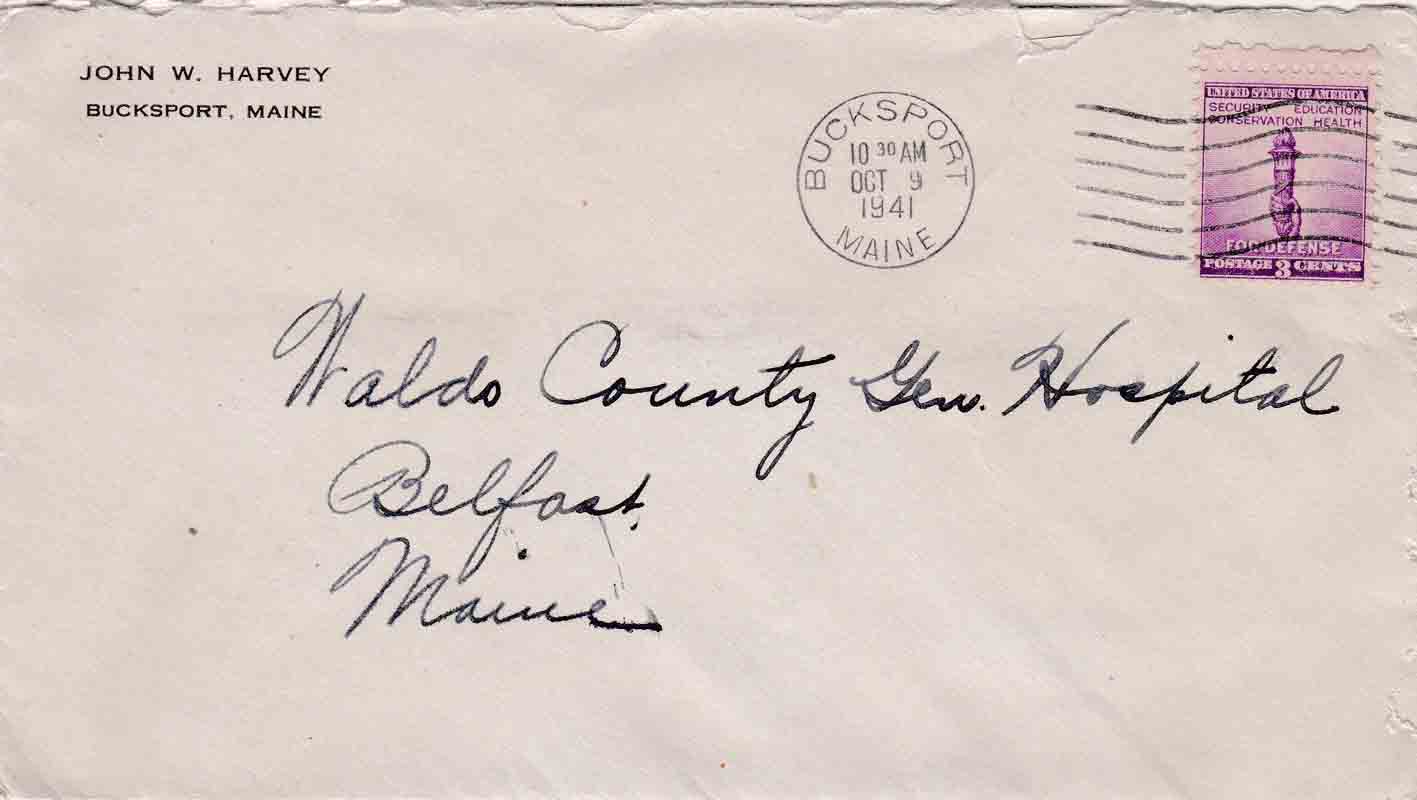 JOHN W. HARVEY
BUCKSPORT, MAINE
BUCKSPORT
10 30 AM
OCT 9
1941
MAINE
UNITED STATES OF AMERICA
SECURITY EDUCATION
CONSERVATION HEALTH
FOR DEFENSE
POSTAGE 3 CENTS
Waldo County Gen. Hospital
Belfast,
Maine